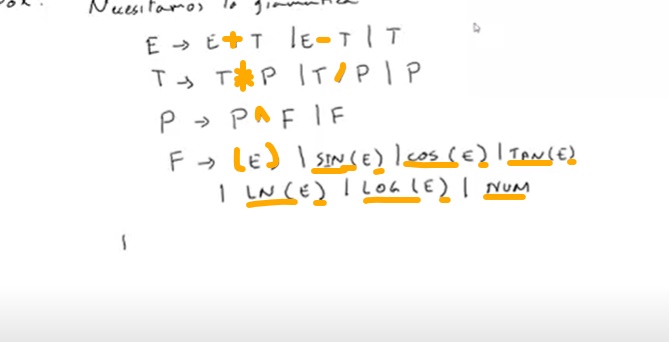 Necesitamos la gramatica
E → E + T | E - T | T
T → T * P | T / P | P
P → P ^ F | F
F → (E) | SIN(E) | COS(E) | TAN(E)
| LN(E) | LOG(E) | NUM
|